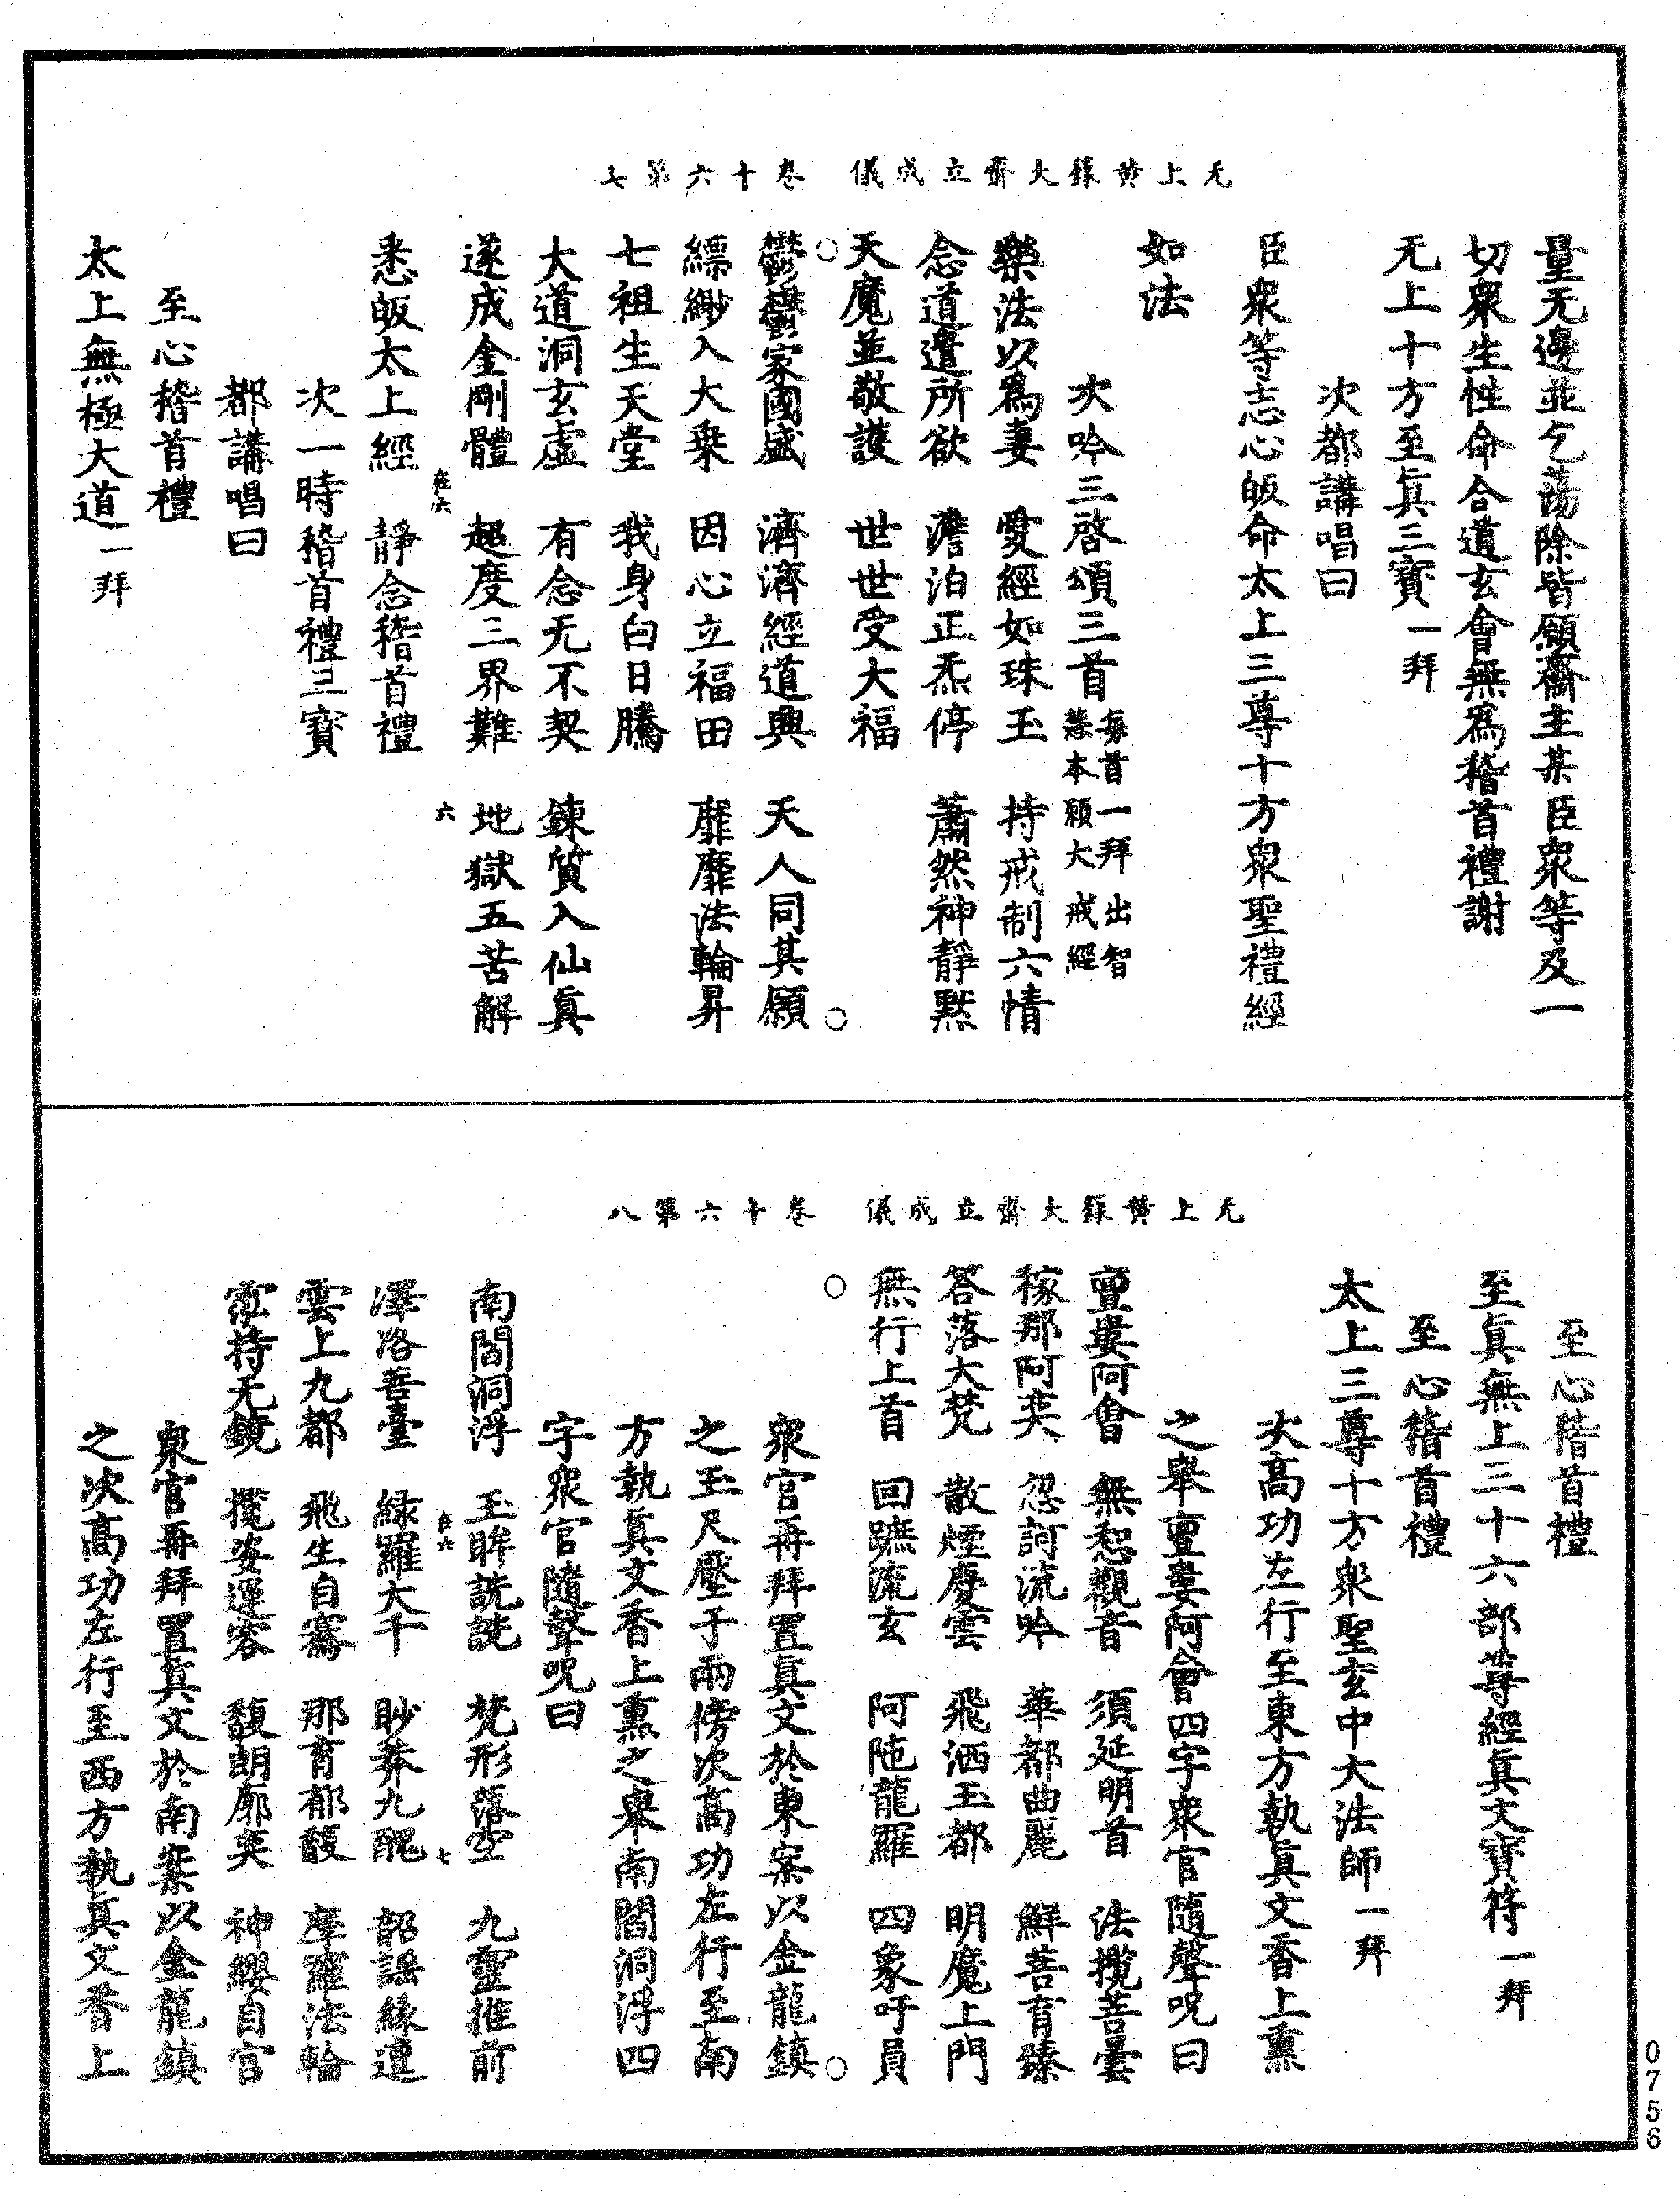 无上黃籙大齋立成儀　卷十六第七
量无邊並乞蕩除皆願齋主某臣衆等及一
切衆生性命合道玄會無爲稽首禮謝
无上十方至眞三寶一拜
次都講唱曰
臣衆等志心皈命太上三尊十方衆聖禮經
如法
次吟三啓頌三首每首一拜出智慧本願大戒經
樂法以爲妻　愛經如珠玉　持戒制六情
念道遣所欲　澹泊正炁停　蕭然神靜默
天魔並敬護　世世受大福
鬱鬱家國盛　濟濟經道興　天人同其願
縹緲入大乗　因心立福田　靡靡法輪昇
七祖生天堂　我身白日騰
大道洞玄虛　有念无不契　鍊質入仙眞
遂成金剛體　超度三界難　地獄五苦解
六
悉皈太上經　靜念稽首禮
次一時稽首禮三寶
都講唱曰
至心稽首禮
太上無極大道一拜
无上黃籙大齋立成儀　卷十六第八
至心稽首禮
至眞無上三十六部尊經眞文寶符一拜
至心稽首禮
太上三尊十方衆聖玄中大法師一拜
次高功左行至東方執眞文香上熏
之舉亶婁阿會四字衆官隨聲呪曰
亶婁阿會　無惒觀音　須延明首　法攬菩曇
稼那阿奕　忽訶流吟　華都曲麗　鮮菩育臻
答落大梵　散煙慶雲　飛洒玉都　明魔上門
無行上首　回蹠流玄　阿陁龍羅　四象吁員
衆官再拜置眞文於東案以金龍鎮
之玉尺壓于兩傍次高功左行至南
方執眞文香上熏之舉南閻洞浮四
字衆官隨聲呪曰
南閻洞浮　玉眸詵詵　梵形落空　九靈推前
七
澤洛菩臺　緑羅大千　眇莽九醜　韶謡緣邅
雲上九都　飛生自騫　那育郁馥　摩羅法輪
霐持无鏡　攬姿運容　馥朗廓奕　神纓自宫
衆官再拜置眞文於南案以金龍鎮
之次高功左行至西方執眞文香上
0756